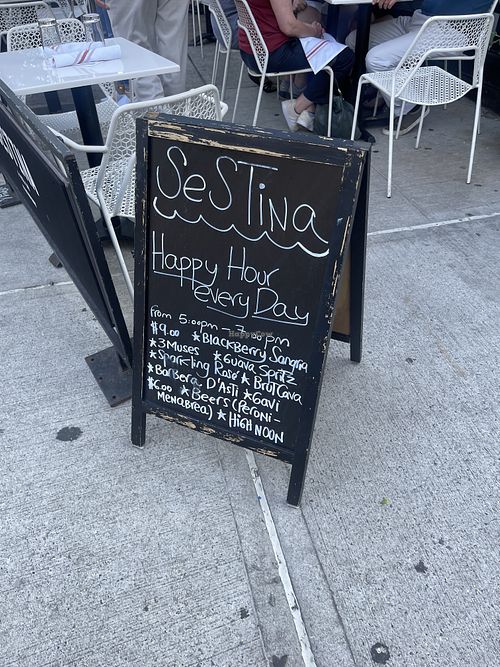 SeSTina
Happy Hour
every Day
from 5:00pm - 7:00pm
$9.00 ★BlackBerry Sangria
★3Muses ★Guava Spritz
★Sparkling Rosé ★BrutCava
★Barbera D'Asti ★Gavi
$6.00 ★Beers (Peroni -
Menabrea) ★HIGH NOON
HappyCow